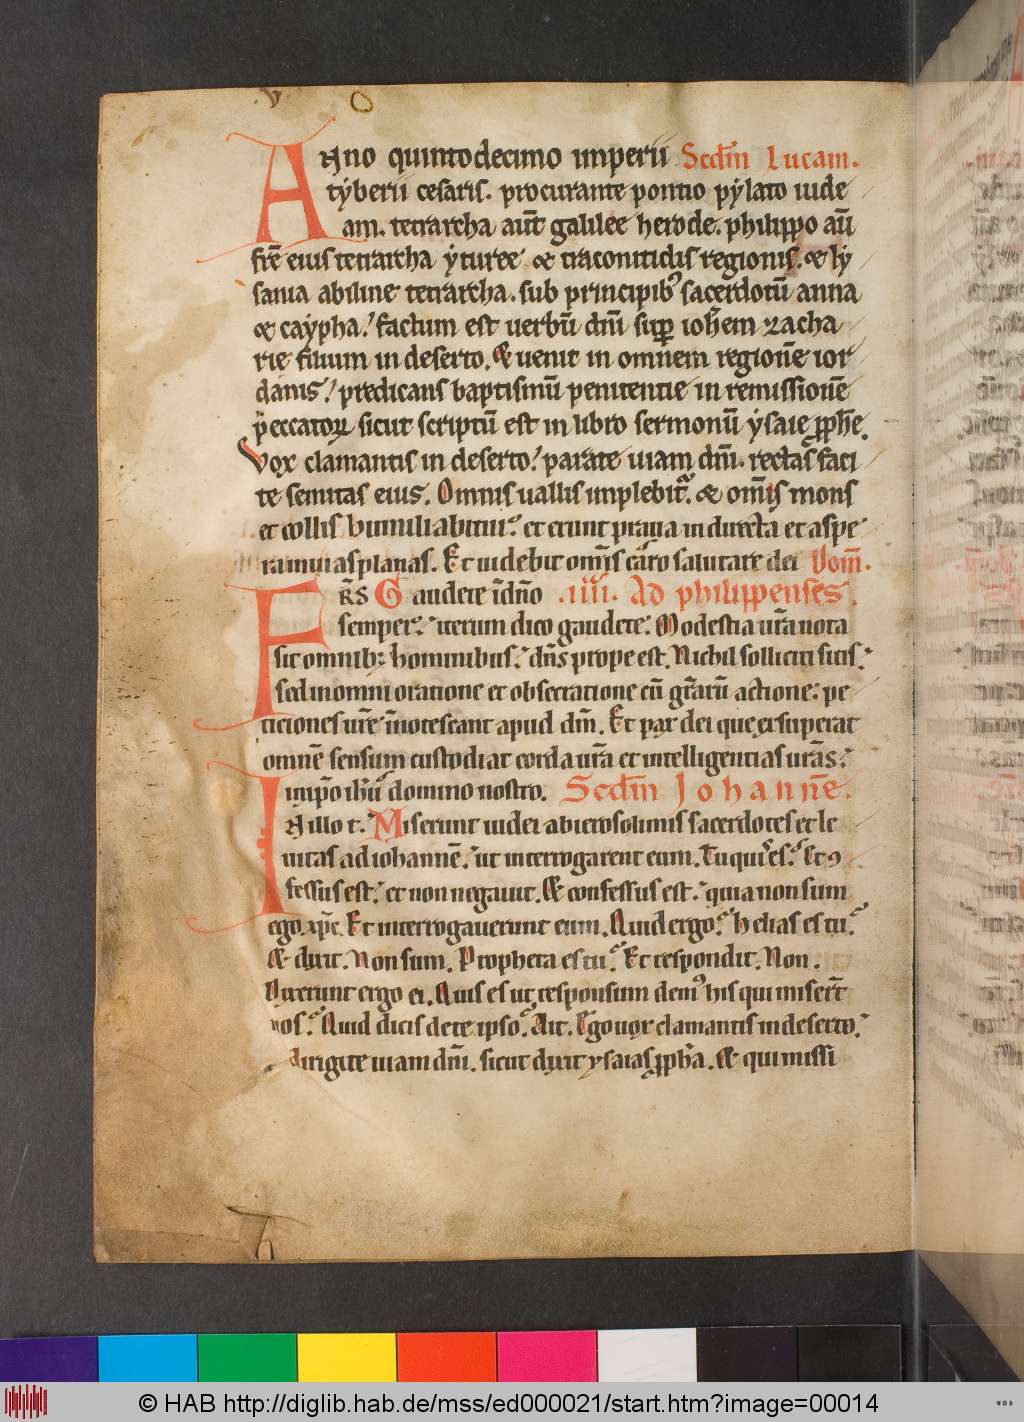 Anno quintodecimo imperii Scd̄m Lucam.
tẏberii cesaris. procurante pontio pẏlato iude
am. tetrarcha aut̄ galilee herode. philippo aū
fr̄e eius tetrarcha ẏturee & traconitidis regionis. & lẏ
sania abiline tetrarcha. sub principibꝰ sacerdotū anna
& caẏpha. factum est uerbū dn̄i sup̱ ioh̄em zacha
rie filium in deserto. & uenit in omnem regionē ior
danis. predicans baptismū penitentie in remissionē
peccatoꝝ sicut scriptū est in libro sermonū ẏsaie ꝓph̄e.
Vox clamantis in deserto. parate uiam dn̄i. rectas faci
te semitas eius. Omnis uallis implebit᷑. & om̄is mons
et collis humiliabitur. et erunt praua in directa et aspe
ra in uias planas. Et uidebit om̄is caro salutare dei Dom̄.
FR̄S Gaudete ī dn̄o .iiii. Ad philippenses.
semper. iterum dico gaudete. Modestia ur̄a nota
sit omnibꝫ hominibus. dn̄s prope est. Nichil solliciti sitis.
sed in omni oratione et obsecratione cū gr̄arū actione. pe
ticiones ur̄e īnotescant apud dm̄. Et pax dei que exsuperat
omnē sensum custodiat corda ur̄a et intelligentias ur̄as.
in xp̄o ih̄u domino nostro. Scd̄m Johannē.
IN illo t. Miserunt iudei ab ierosolimis sacerdotes et le
uitas ad iohannē. ut interrogarent eum. Tu quis es. Et ꝯ
fessus est. et non negauit. & confessus est. quia non sum
ego xp̄c. Et interrogauerunt eum. Quid ergo. helias es tu.
& dixit. Non sum. Propheta es tu. Et respondit. Non.
Dixerunt ergo ei. Quis es ut responsum demꝰ his qui miser̄t
nos. Quid dicis de te ipso. Ait. Ego uox clamantis in deserto.
dirigite uiam dn̄i. sicut dixit ysaias ꝓph̄a. & qui missi
© HAB http://diglib.hab.de/mss/ed000021/start.htm?image=00014